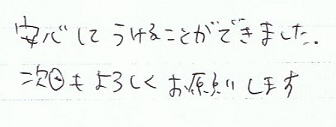 安心してうけることができました.
次回もよろしくお願いします